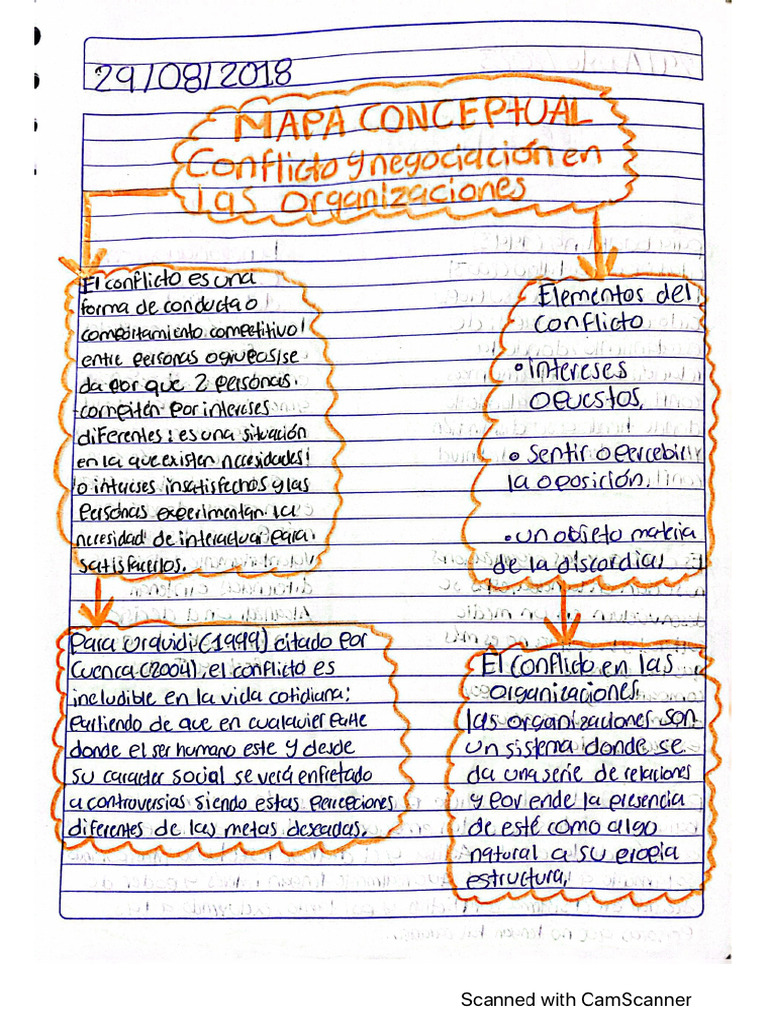 29/08/2018
MAPA CONCEPTUAL
Conflicto y negociación en
las organizaciones
El conflicto es una
forma de conducta o
comportamiento competitivo
entre personas o grupos; se
da por que 2 personas.
compiten por intereses
diferentes: es una situación
en la que existen necesidades
o intereses insatisfechos y las
personas experimentan la
necesidad de interactuar para
satisfacerlos.
Elementos del
conflicto
• Intereses
opuestos.
• Sentir o percebir
la oposición.
• un objeto materia
de la discordia,
Para Urquidi (1999) citado por
Cuenca (2004), el conflicto es
ineludible en la vida cotidiana;
partiendo de que en cualquier parte
donde el ser humano este y desde
su caracter social se verá enfretado
a controversias siendo estas percepciones
diferentes de las metas deseadas.
El conflicto en las
organizaciones,
las organizaciones son
un sistema donde se
da una serie de relaciones
y por ende la presencia
de esté como algo
natural a su propia
estructura,
Scanned with CamScanner